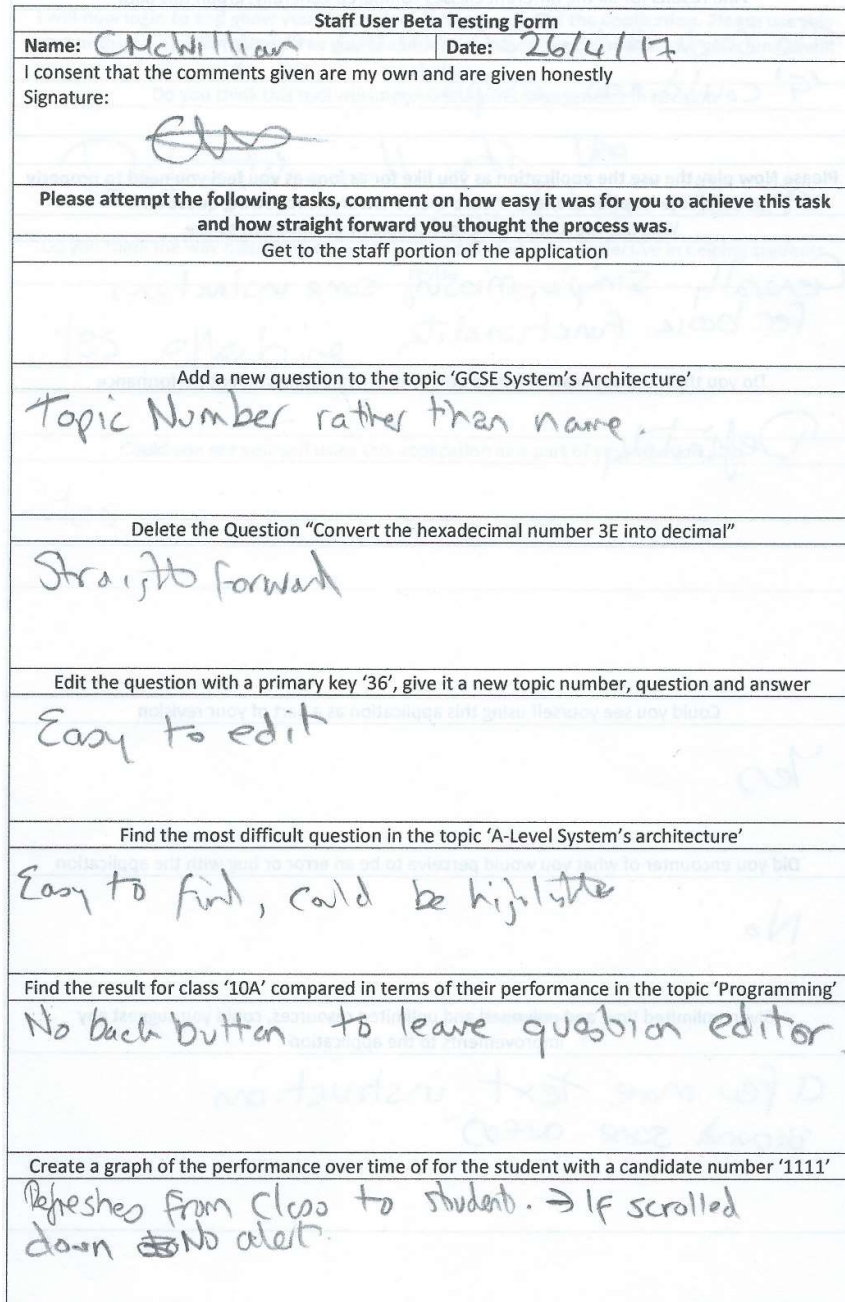 Staff User Beta Testing Form
Name: CMcWillian Date: 26/4/17
I consent that the comments given are my own and are given honestly
Signature:
Please attempt the following tasks, comment on how easy it was for you to achieve this task
and how straight forward you thought the process was.
Get to the staff portion of the application
Add a new question to the topic 'GCSE System's Architecture'
Topic Number rather than name.
Delete the Question "Convert the hexadecimal number 3E into decimal"
Straight forward
Edit the question with a primary key '36', give it a new topic number, question and answer
Easy to edit
Find the most difficult question in the topic 'A-Level System's architecture'
Easy to find, could be
Find the result for class '10A' compared in terms of their performance in the topic 'Programming'
No back button to leave question editor
Create a graph of the performance over time of for the student with a candidate number '1111'
Refreshes from Class to student. → If scrolled
down No alert.